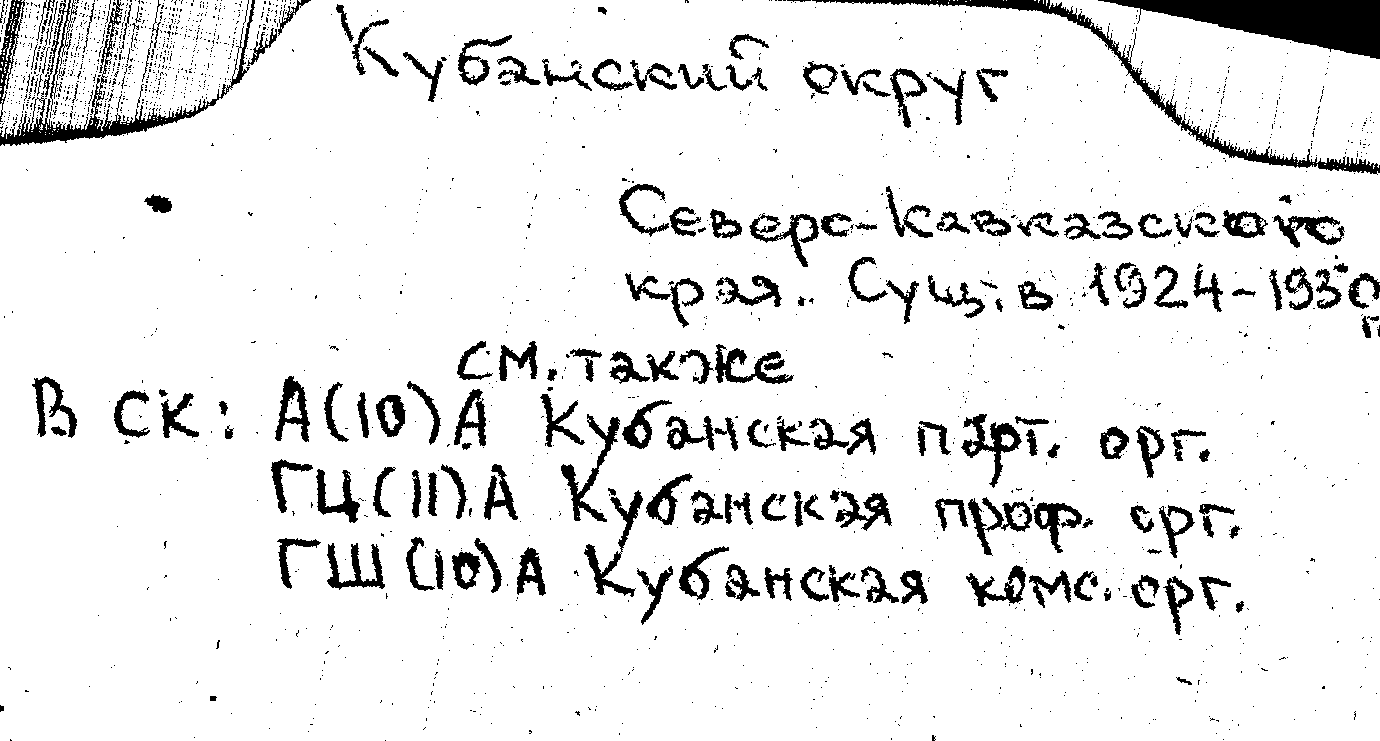 Кубанский округ
Северо-Кавказского
края. Сущ. в 1924-1930
г
см. также
В СК: А(10)А Кубанская парт. орг.
ГЦ(11)А Кубанская проф. орг.
ГШ(10)А Кубанская комс. орг.